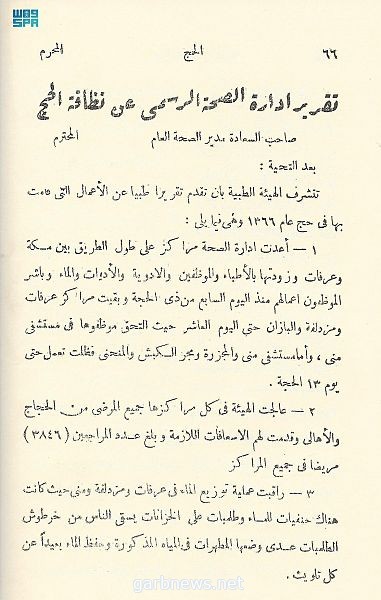 واس
SPA
٦٦ الحج المحرم
تقرير ادارة الصحة الرسمى عن نظافة الحج
صاحب السعادة مدير الصحة العام المحترم
بعد التحية :
تتشرف الهيئة الطبية بأن تقدم تقريرا طبيا عن الأعمال التى قامت
بها فى حج عام ١٣٦٦ وهى فيما يلى :
١ — أعدت ادارة الصحة مراكز على طول الطريق بين مكة
وعرفات وزودتها بالأطباء والموظفين والادوية والأدوات والماء وباشر
الموظفون اعمالهم منذ اليوم السابع من ذى الحجة وبقيت مراكز عرفات
ومزدلفة والبازان حتى اليوم العاشر حيث التحق موظفوها فى مستشفى
منى ، وأما مستشفى منى والمجزرة ومجر الكبش والمنحنى فظلت تعمل حتى
يوم ١٣ الحجة .
٢ — عالجت الهيئة فى كل مراكزها جميع المرضى من الحجاج
والأهالى وقدمت لهم الاسعافات اللازمة وبلغ عدد المراجعين ( ٣٨٤٦ )
مريضا فى جميع المراكز
٣ — راقبت عملية توزيع الماء فى عرفات ومزدلفة ومنى حيث كانت
هناك حنفيات للماء وطلمبات على الخزانات يسقى الناس من خرطوش
الطلمبات عدى وضعها المطهرات فى المياه المذكورة وحفظ الماء بعيداً عن
كل تلويث .
garbnews.net